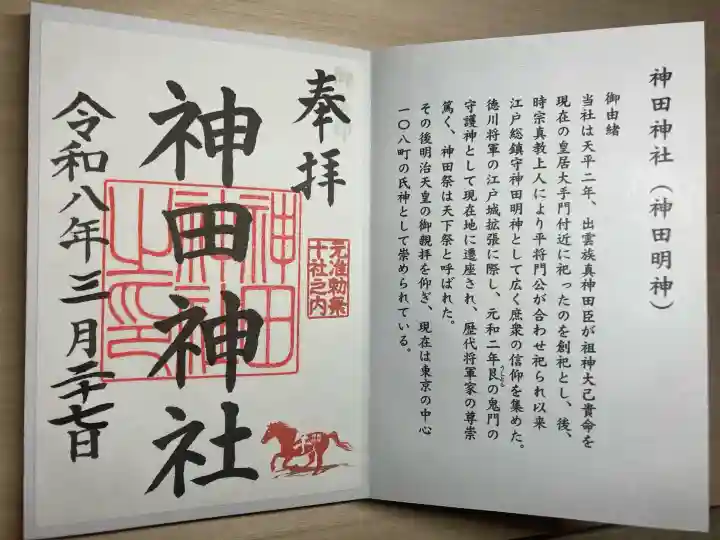 神田神社(神田明神)
御由緒
当社は天平二年、出雲族真神田臣が祖神大己貴命を
現在の皇居大手門付近に祀ったのを創祀とし、後、
時宗真教上人により平将門公が合わせ祀られ以来
江戸総鎮守神田明神として広く庶衆の信仰を集めた。
徳川将軍の江戸城拡張に際し、元和二年艮の鬼門の
うしとら
守護神として現在地に遷座され、歴代将軍家の尊崇
篤く、神田祭は天下祭と呼ばれた。
その後明治天皇の御親拝を仰ぎ、現在は東京の中心
一〇八町の氏神として崇められている。
奉拝
元准勅祭
十社之内
神田神社
神田
神社
之印
令和八年三月二十七日